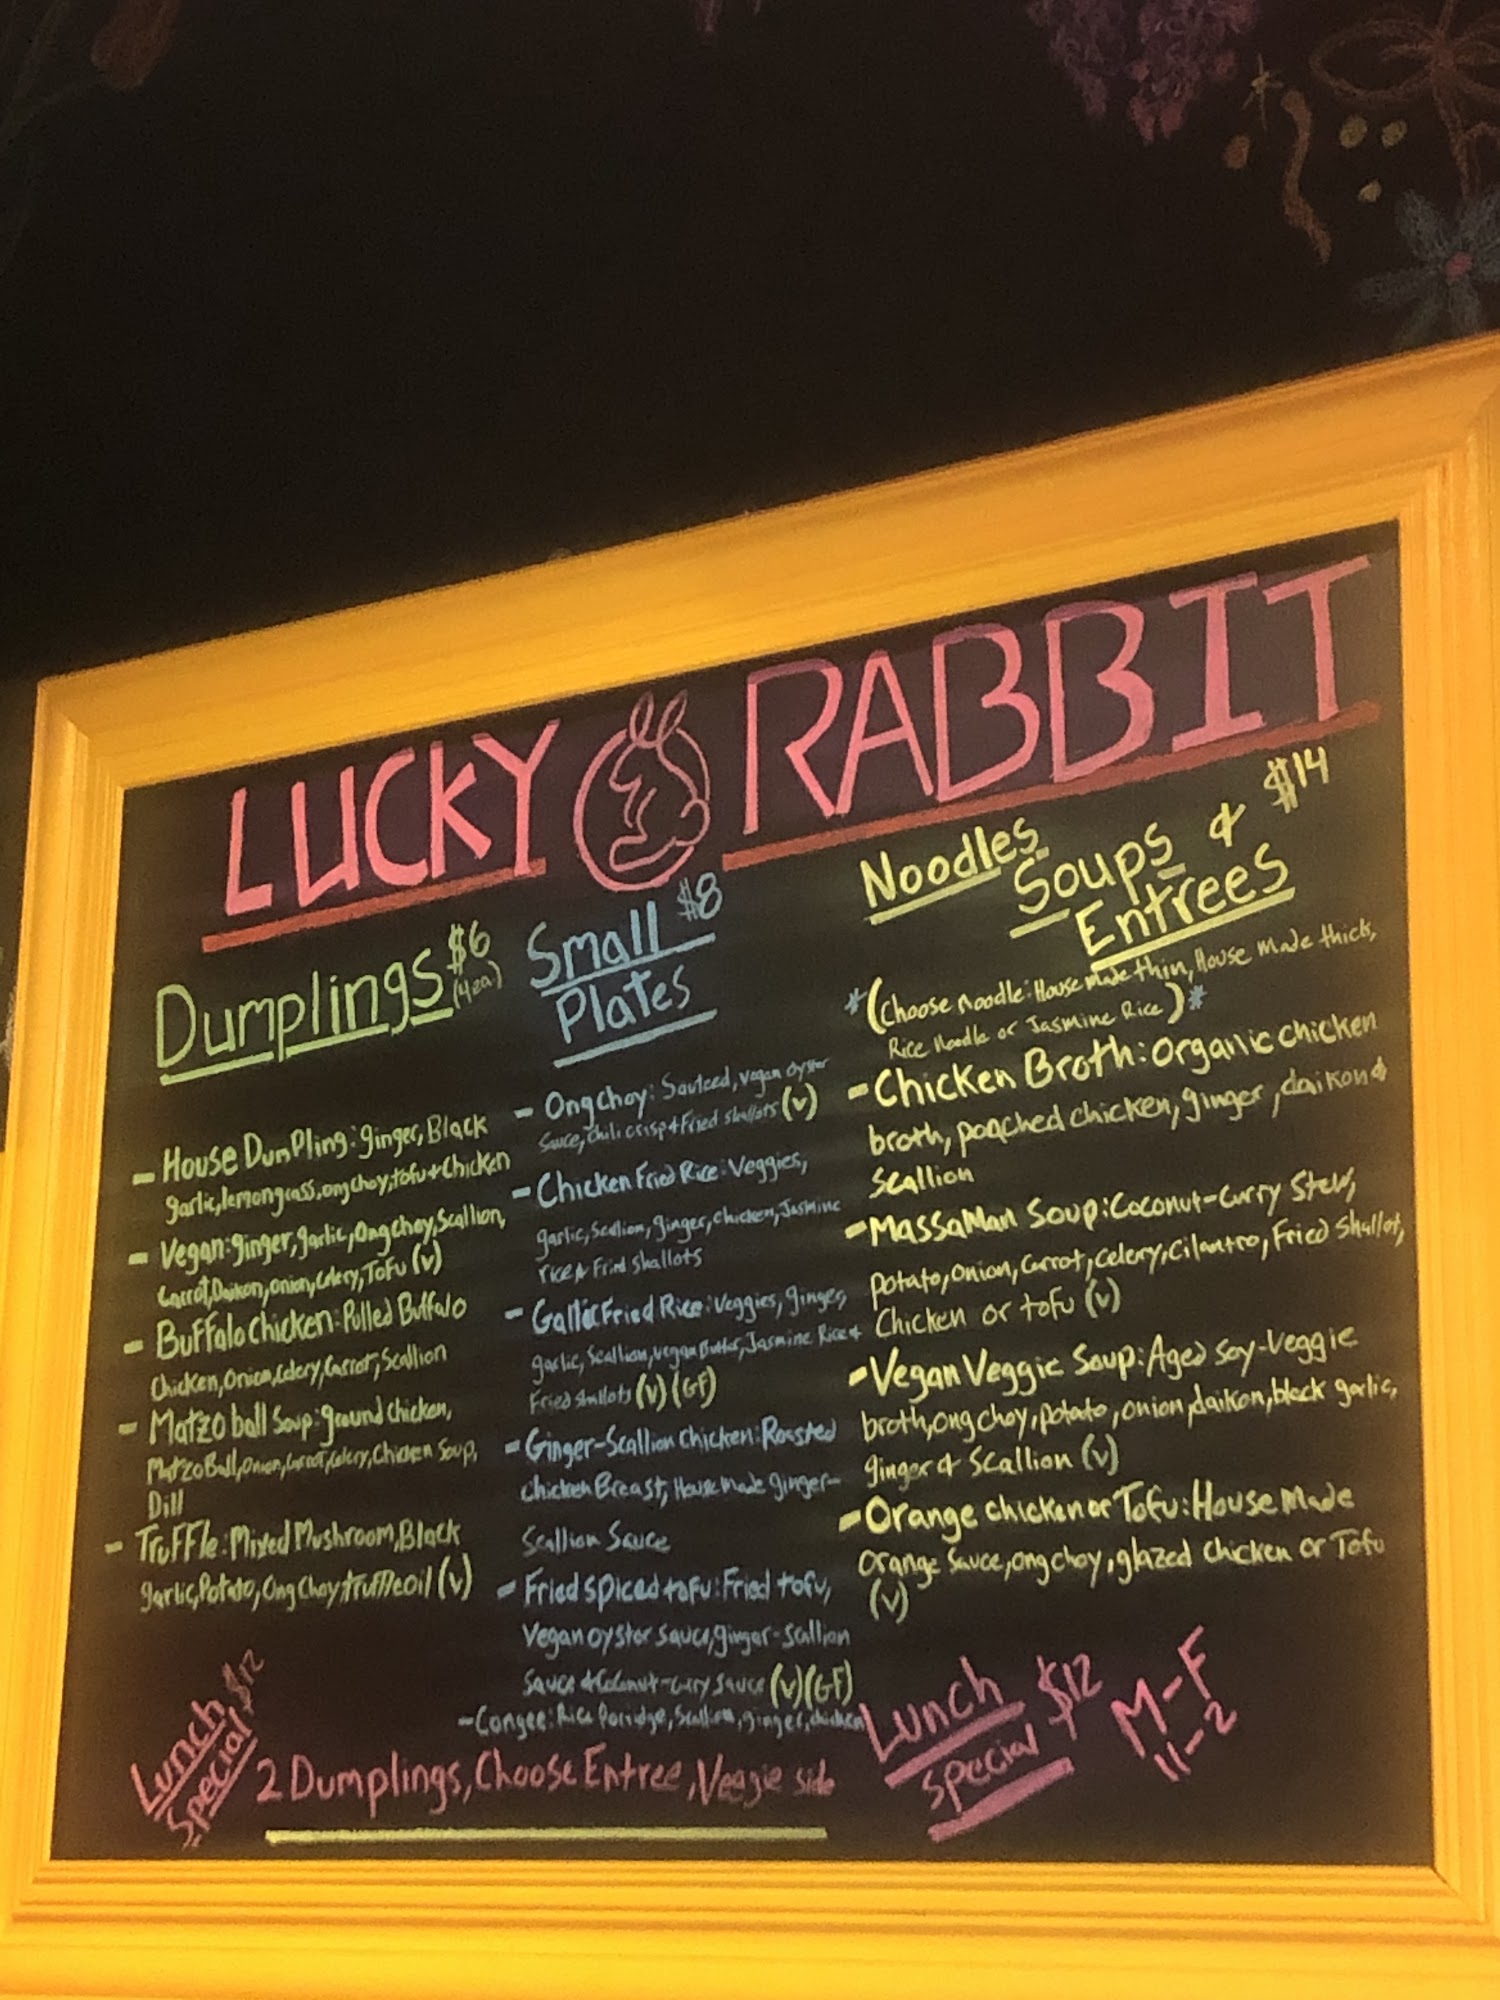 LUCKY RABBIT
Dumplings $6
(4 ea.)
- House Dumpling: ginger, Black
garlic, lemongrass, ong choy, tofu + Chicken
- Vegan: ginger, garlic, Ong Choy, Scallion,
Carrot, Daikon, onion, Celery, Tofu (v)
- Buffalo Chicken: Pulled Buffalo
Chicken, Onion, Celery, Carrot, Scallion
- Matzo ball Soup: ground chicken,
Matzo Ball, Onion, Carrot, Celery, Chicken Soup,
Dill
- Truffle: Mixed Mushroom, Black
garlic, Potato, Ong Choy, truffle oil (v)
Small $8
Plates
- Ong Choy: Sauteed, vegan oyster
Sauce, Chili crisp + Fried shallots (v)
- Chicken Fried Rice: Veggies,
garlic, Scallion, ginger, chicken, Jasmine
rice & Fried shallots
- Gallic Fried Rice: Veggies, ginger,
garlic, Scallion, vegan Butter, Jasmine Rice +
Fried shallots (v) (GF)
- Ginger-Scallion Chicken: Roasted
chicken Breast, House Made ginger-
Scallion Sauce
- Fried spiced tofu: Fried tofu,
Vegan oyster sauce, ginger-scallion
Sauce & Coconut-curry sauce (v) (GF)
- Congee: Rice Porridge, Scallion, ginger, chicken
Noodles
Soups & $14
Entrees
*(Choose noodle: House made thin, House made thick,
Rice Noodle or Jasmine Rice)*
- Chicken Broth: Organic chicken
broth, poached chicken, ginger, daikon &
Scallion
- Massaman Soup: Coconut-Curry Stew,
Potato, Onion, Carrot, Celery, Cilantro, Fried Shallot,
Chicken or tofu (v)
- Vegan Veggie Soup: Aged Soy-Veggie
broth, ong choy, potato, onion, daikon, black garlic,
ginger & Scallion (v)
- Orange Chicken or Tofu: House Made
Orange Sauce, ong choy, glazed Chicken or Tofu
(v)
Lunch $12
Special
2 Dumplings, Choose Entree, Veggie side
Lunch
Special $12
M-F
11-2